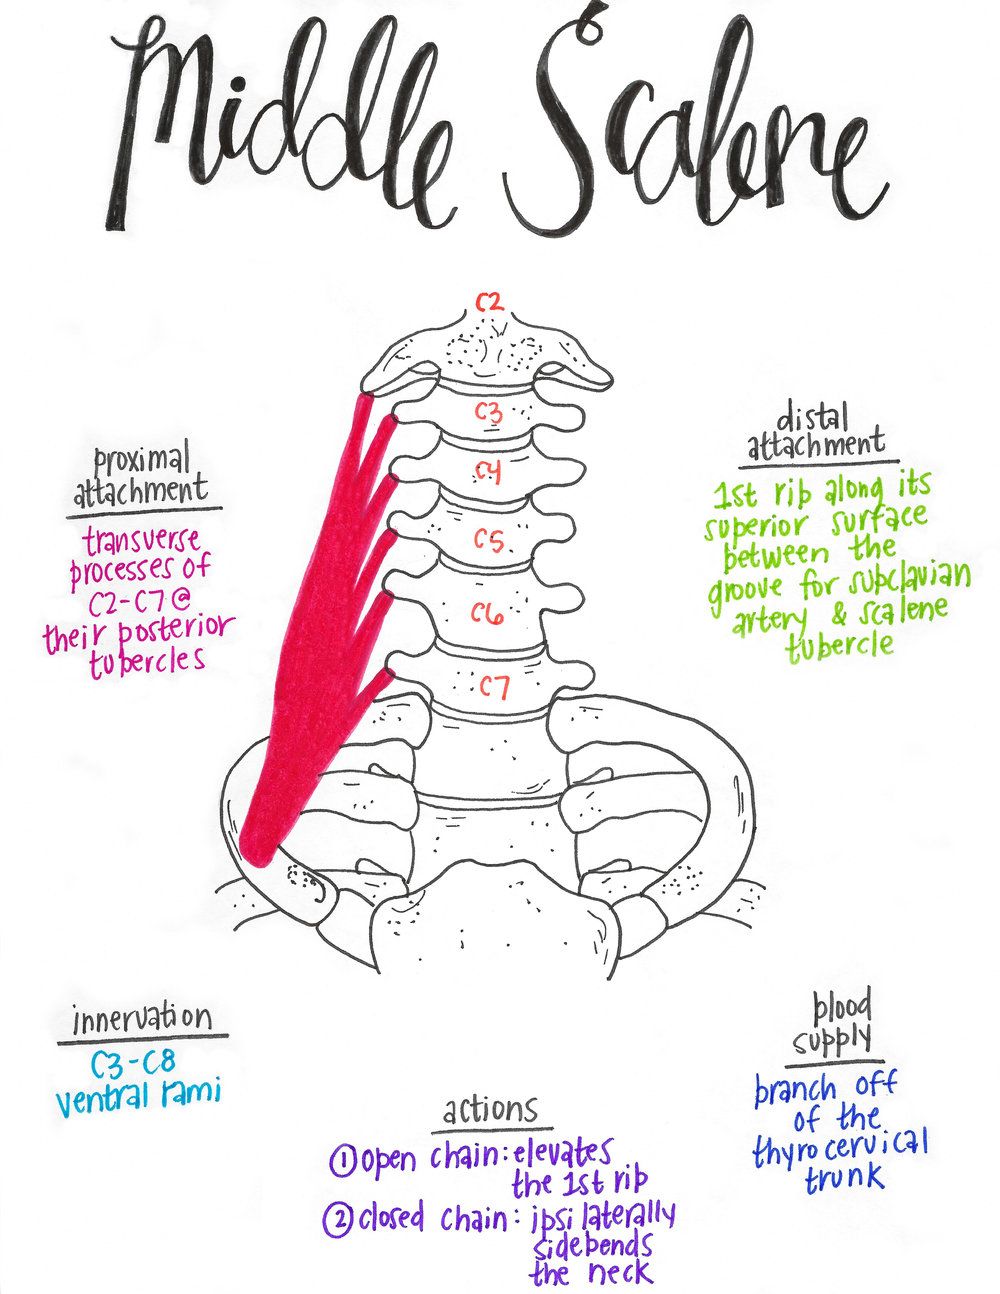 Middle Scalene
C2
C3
C4
C5
C6
C7
proximal
attachment
transverse
processes of
C2-C7 @
their posterior
tubercles
distal
attachment
1st rib along its
superior surface
between the
groove for subclavian
artery & scalene
tubercle
innervation
C3-C8
ventral rami
actions
① open chain: elevates
the 1st rib
② closed chain: ipsilaterally
sidebends
the neck
blood
supply
branch off
of the
thyrocervical
trunk